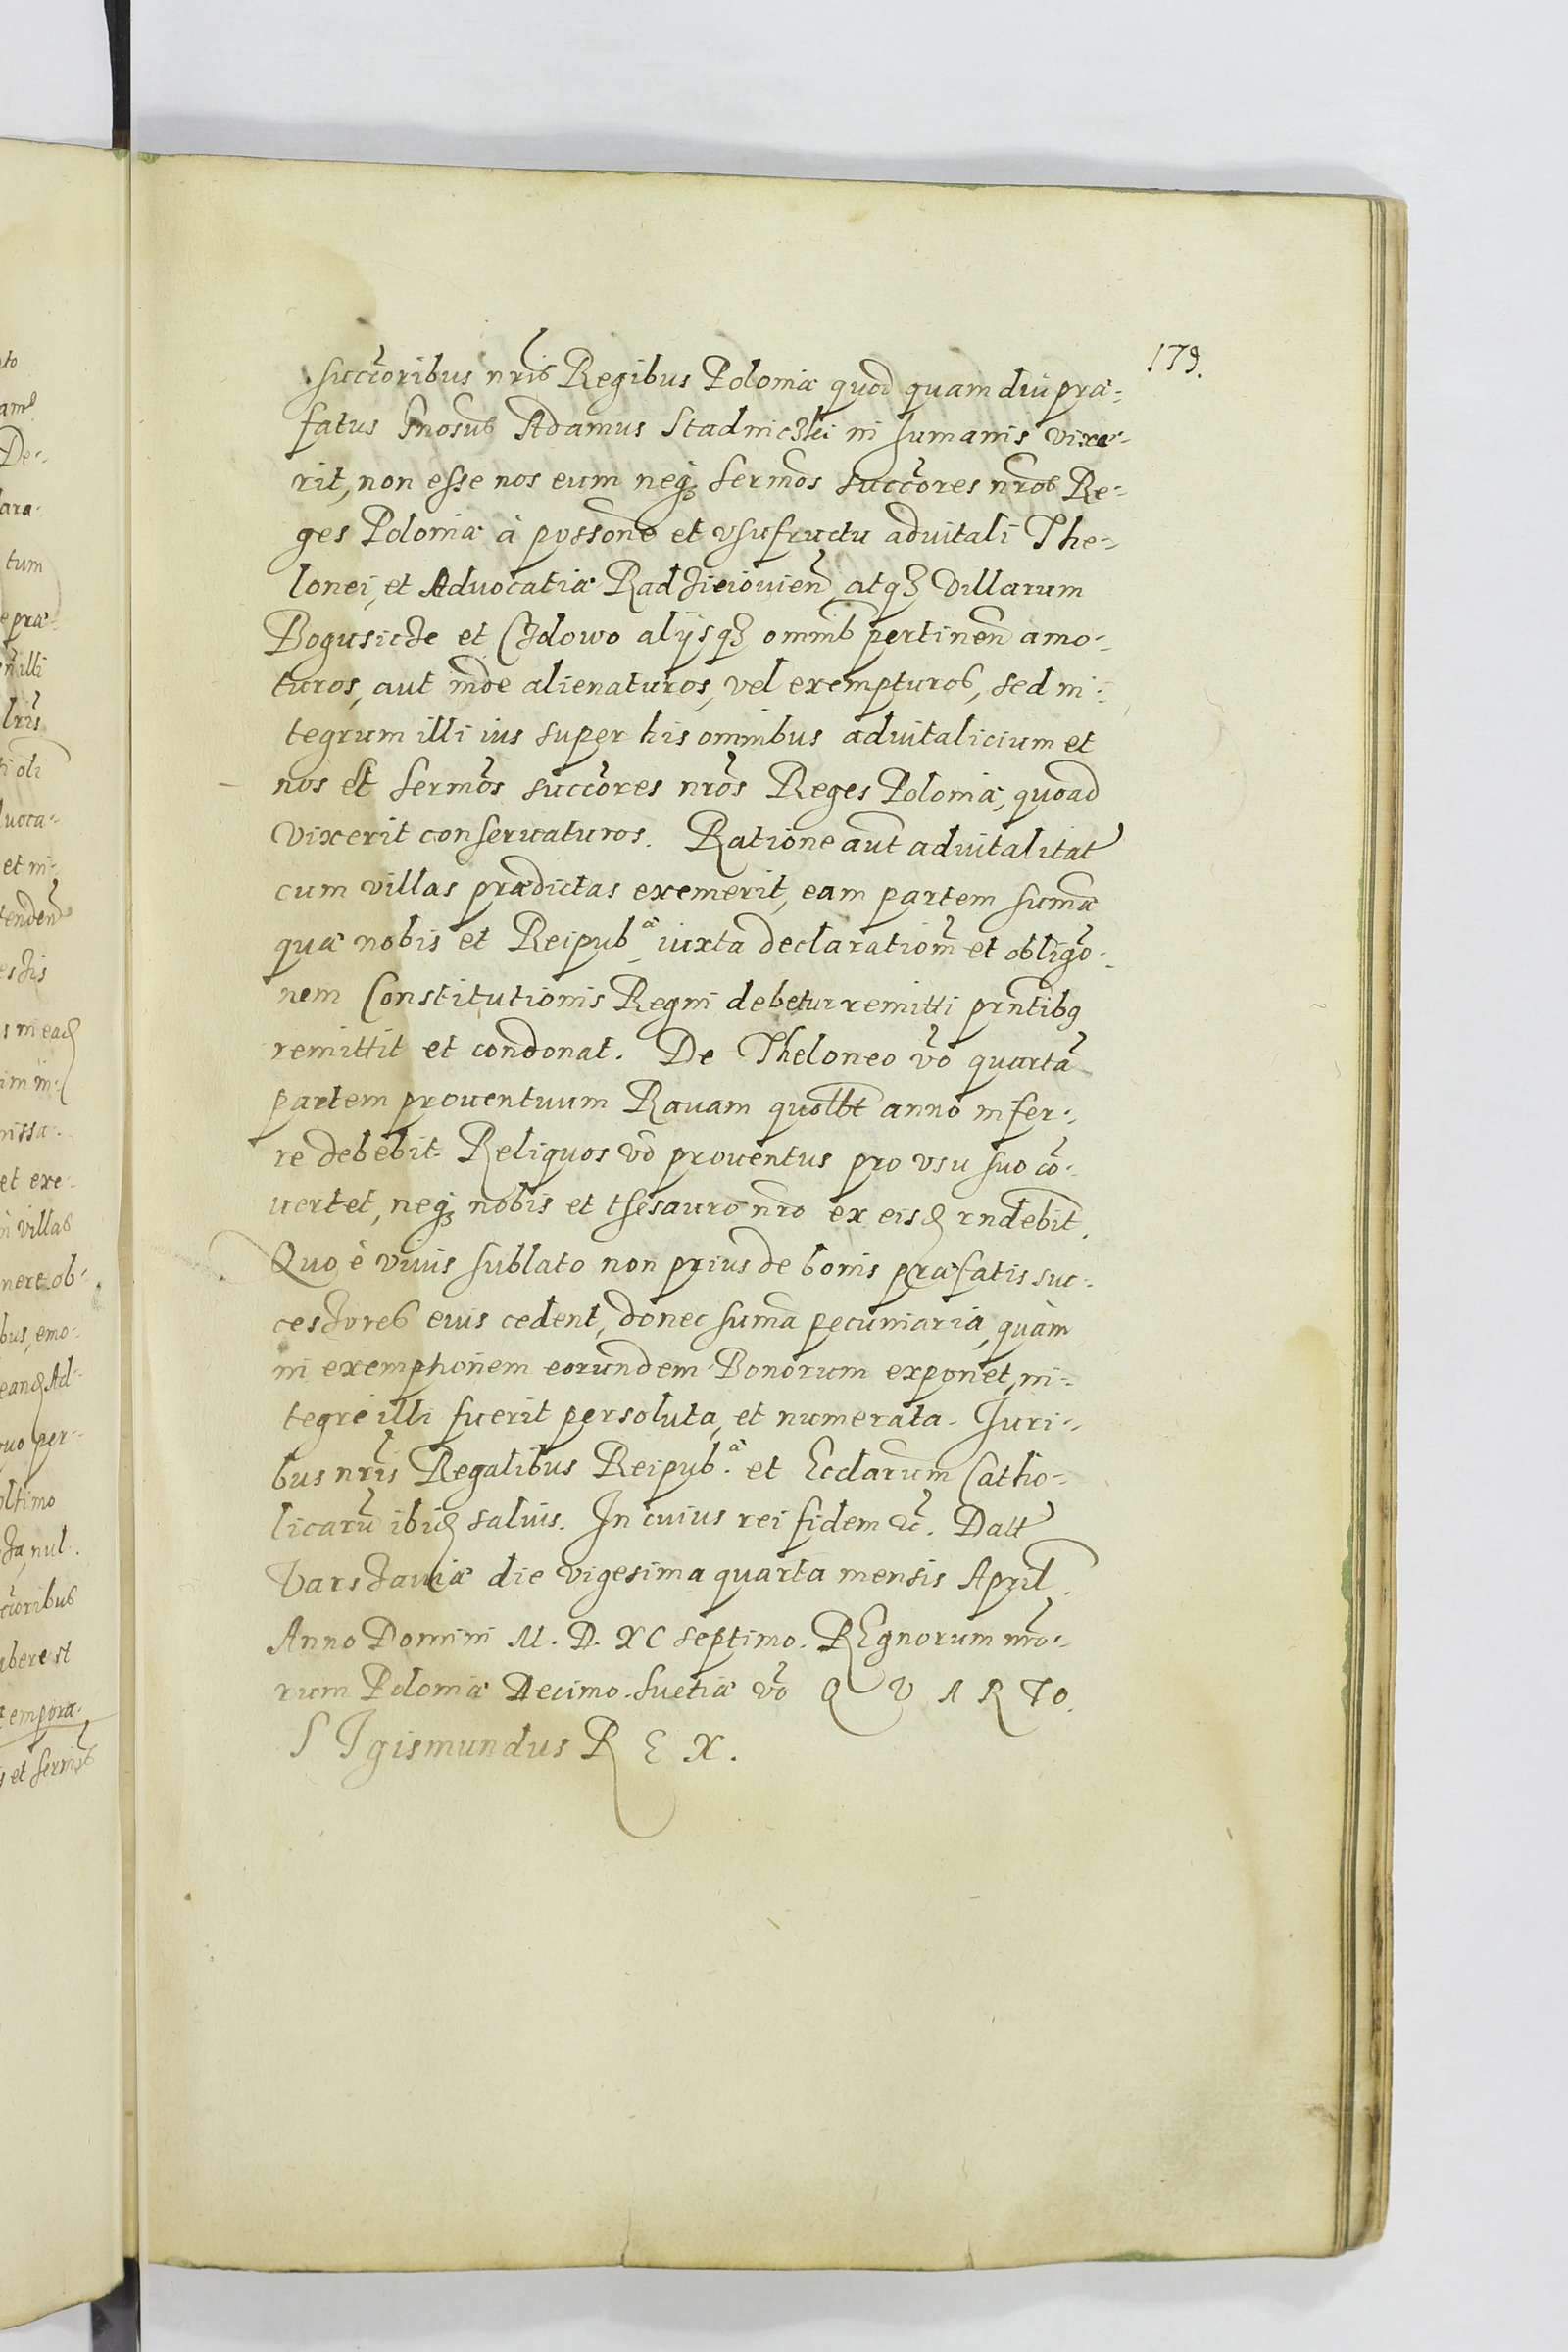 179.
succōribus nr̄is Regibus Poloniæ quod quam diu præ-
fatus Gnosus Adamus Stadniczki in humanis vixe-
rit, non esse nos eum neq3 sermos succōres nr̄os Re-
ges Poloniæ à possone et vsufructu aduitali The-
lonei, et Aduocatiæ Radzieiouien̄ atq3 Villarum
Bogusicze et Czdowo alijsq3 omnib pertinen̄ amo-
turos, aut inde alienaturos, vel exempturos, sed in-
tegrum illi ius super his omnibus aduitalicium et
nos et sermōs succōres nr̄os Reges Poloniæ, quoad
vixerit conseruaturos. Ratione aut̄ aduitalitat
cum villas prædictas exemerit, eam partem sum̄æ
quæ nobis et Reipub.æ iuxta declaratiom̄ et obligō-
nem Constitutionis Regni debetur remitti prn̄tibq
remittit et condonat. De Theloneo vō quartā
partem prouentuum Rauam quolbt anno infer-
re debebit. Reliquos vō prouentus pro vsu suo cō-
uertet, neq3 nobis et thesauro nro ex eisd rn̄debit.
Quo è viuis sublato non prius de bonis præfatis suc-
cessores eius cedent, donec sum̄a pecuniaria, quàm
in exemptionem eorundem Bonorum exponet, in-
tegrè illi fuerit persoluta, et numerata. Iuri-
bus nr̄is Regalibus Reipub.æ et Eccl̄arum Catho-
licarū ibid saluis. In cuius rei fidem &c̄. Datt
Varsauiæ die vigesima quarta mensis April.
Anno Domini M. D. XC septimo. REgnorum nr̄o-
rum Poloniæ Decimo. Suetiæ vō Q V A R T O.
SIgismundus R E X.